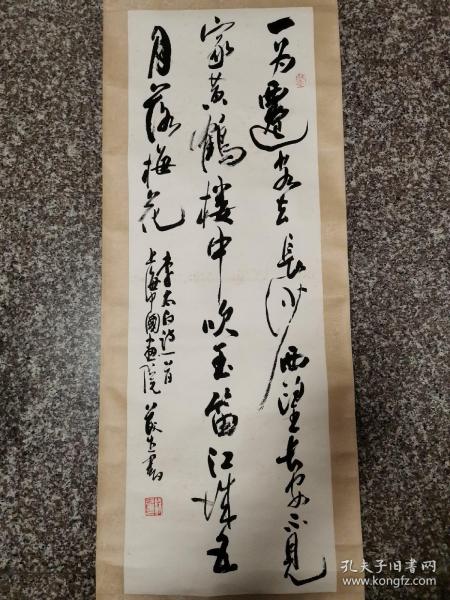 一为迁客去长沙西望长安不见
家黄鹤楼中吹玉笛江城五
月落梅花
李太白诗一首
上海中國画院
书
孔夫子旧书网
www.kongfz.com